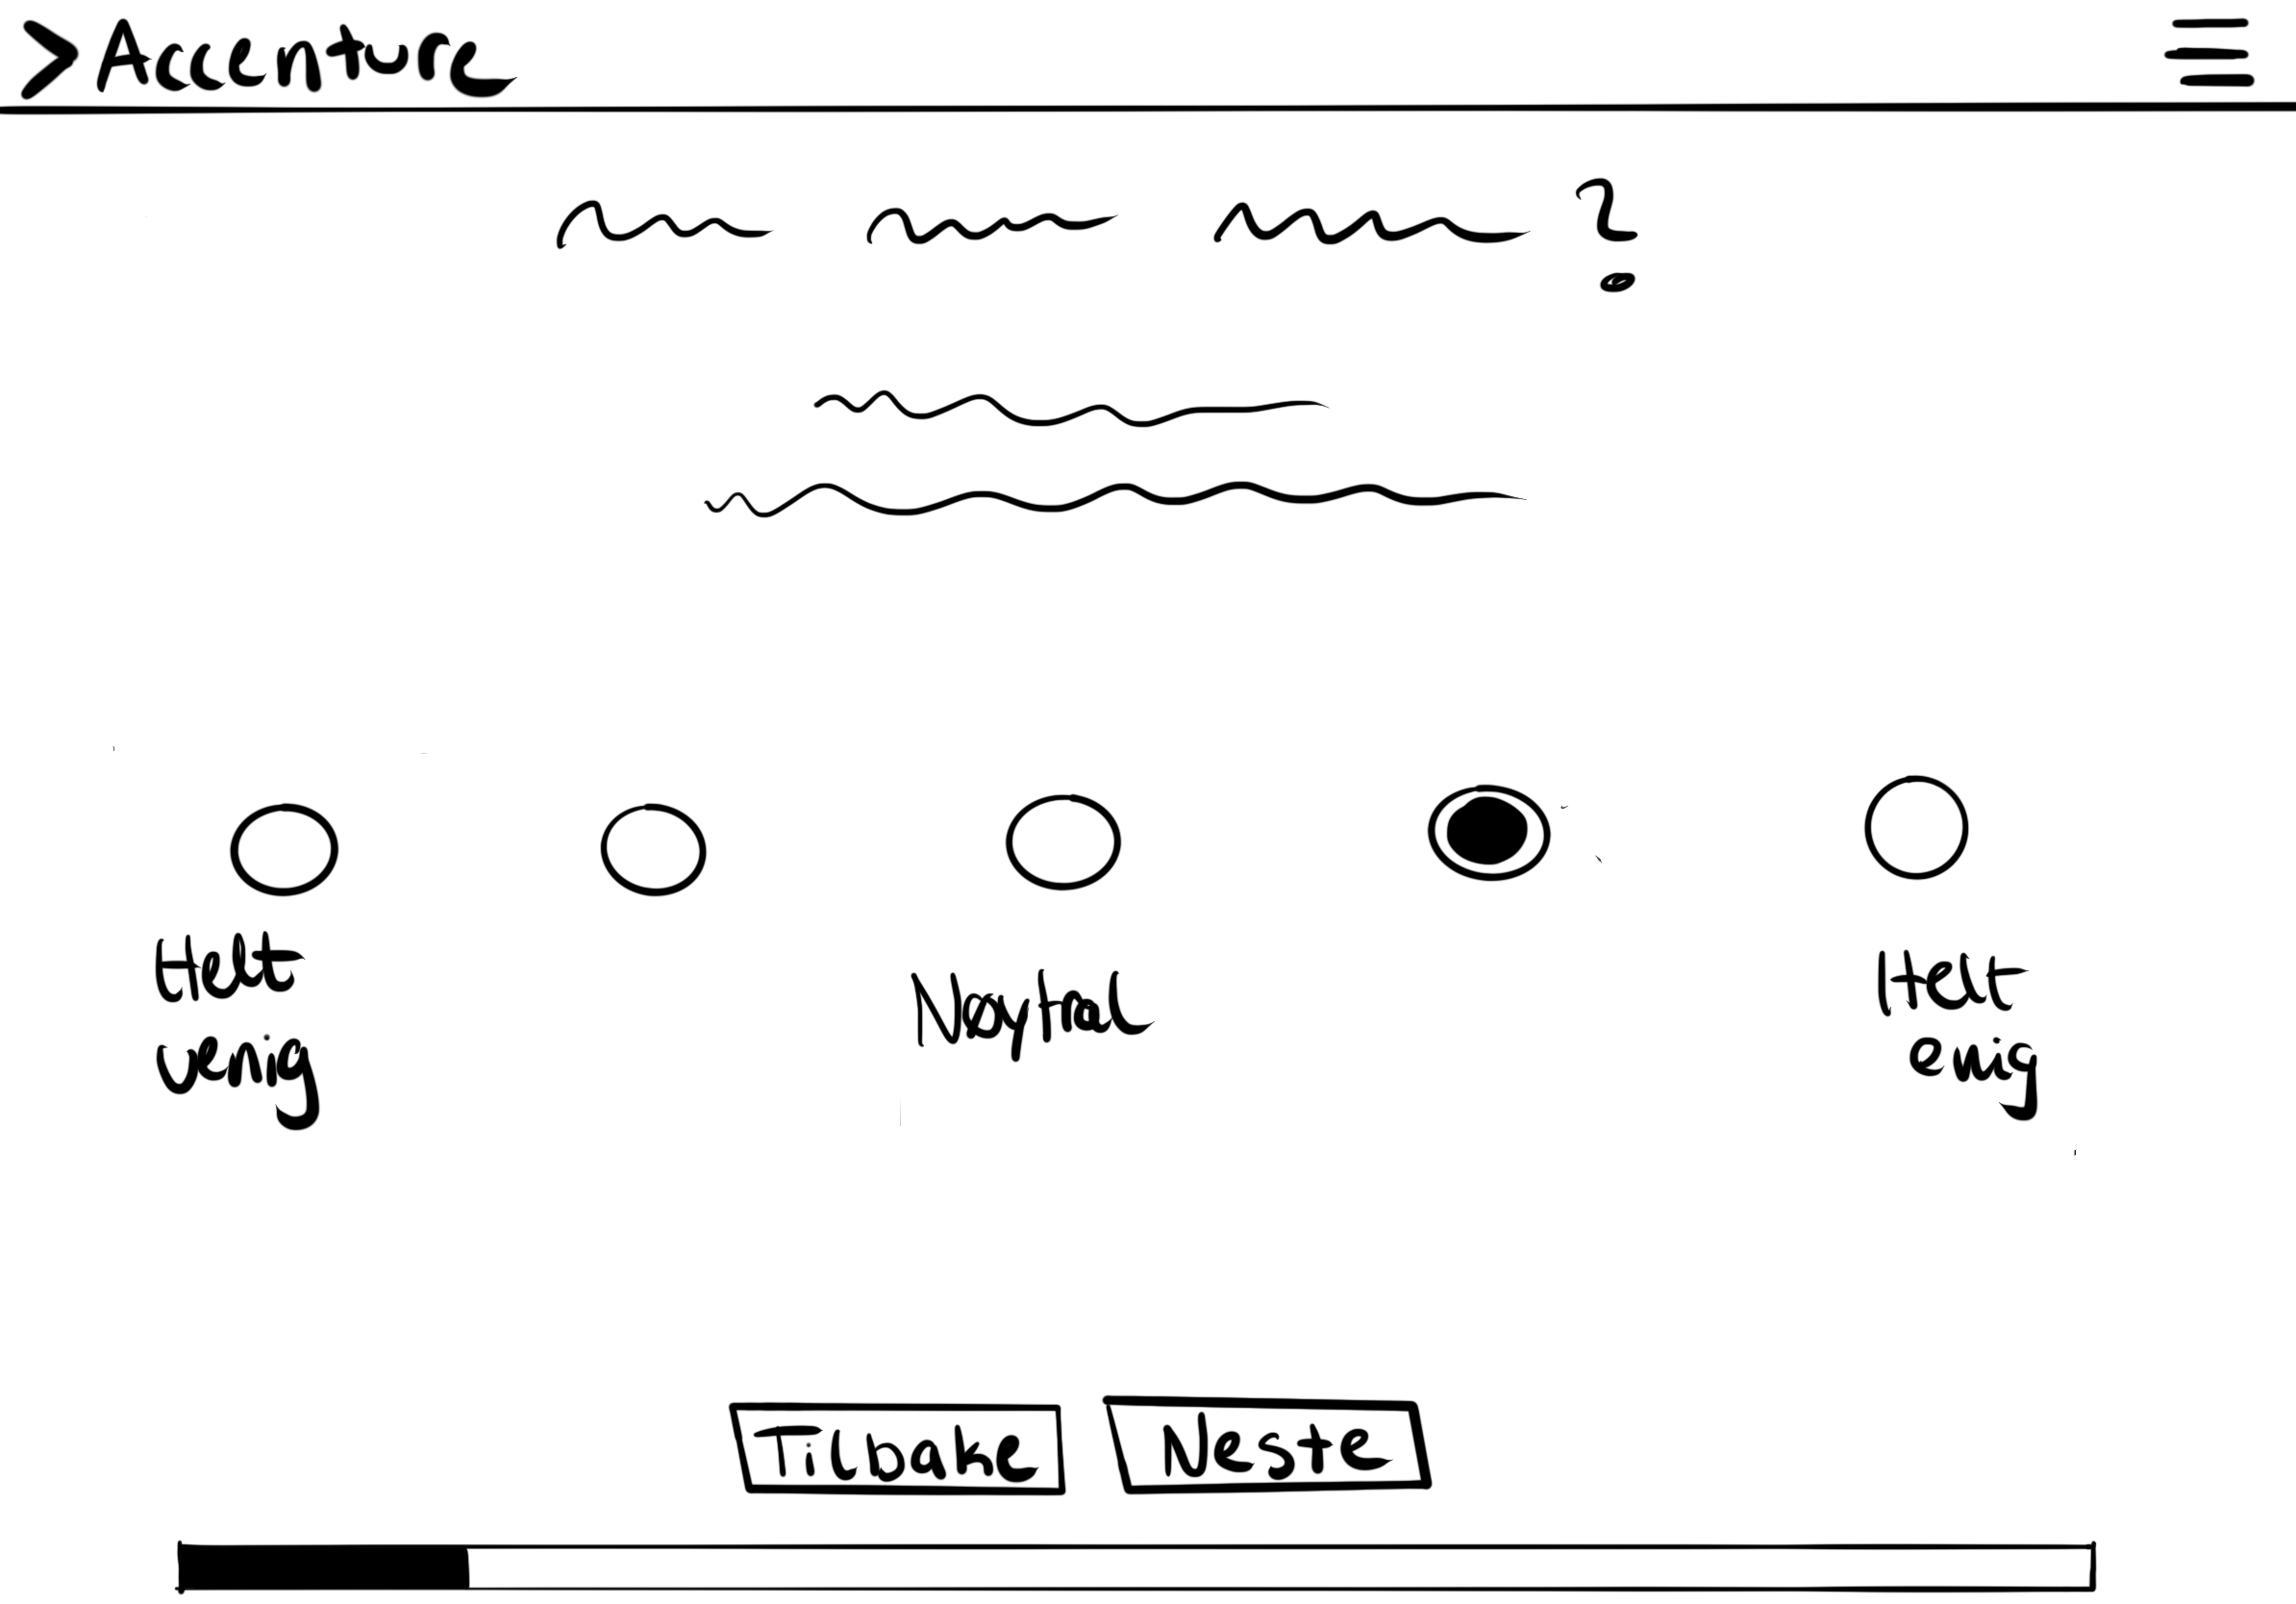 >Accenture
?
Helt
uenig
Nøytral
Helt
enig
Tilbake
Neste